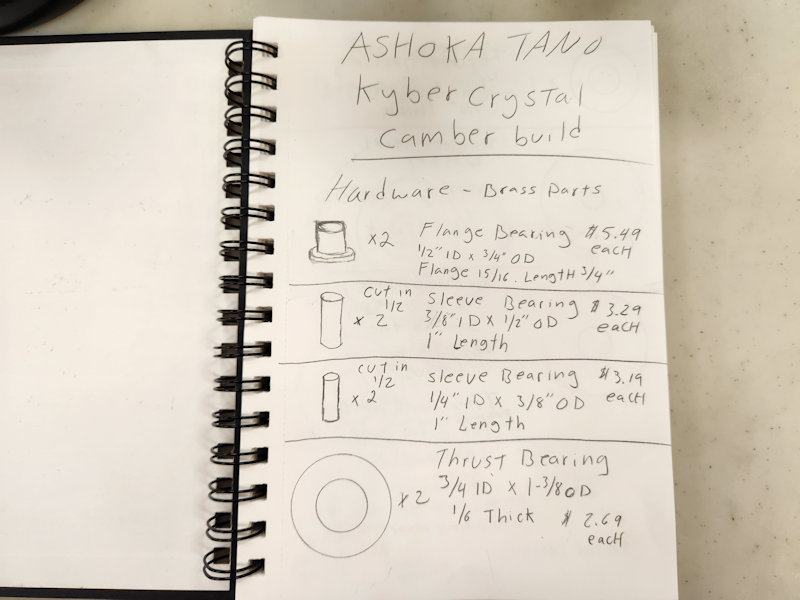 ASHOKA TANO
Kyber Crystal
Camber build
Hardware - Brass Parts
x2 Flange Bearing $5.49
each
1/2" ID x 3/4" OD
Flange 15/16. Length 3/4"
cut in 1/2
x 2 Sleeve Bearing $3.29
3/8" ID x 1/2" OD each
1" Length
cut in 1/2
x 2 Sleeve Bearing $3.19
1/4" ID x 3/8" OD each
1" Length
Thrust Bearing
x2 3/4 ID x 1-3/8 OD
1/6 Thick $2.69
each